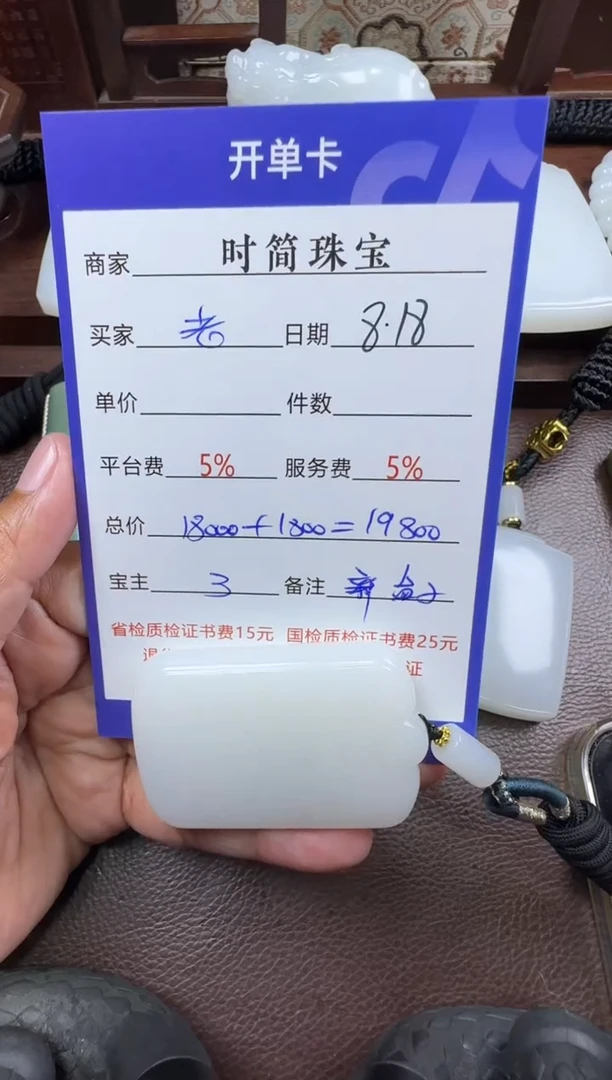 开单卡
商家 时简珠宝
买家 老 日期 8.18
单价 件数
平台费 5% 服务费 5%
总价 18000+1800=19800
宝主 3 备注
省检质检证书费15元 国检质检证书费25元
证